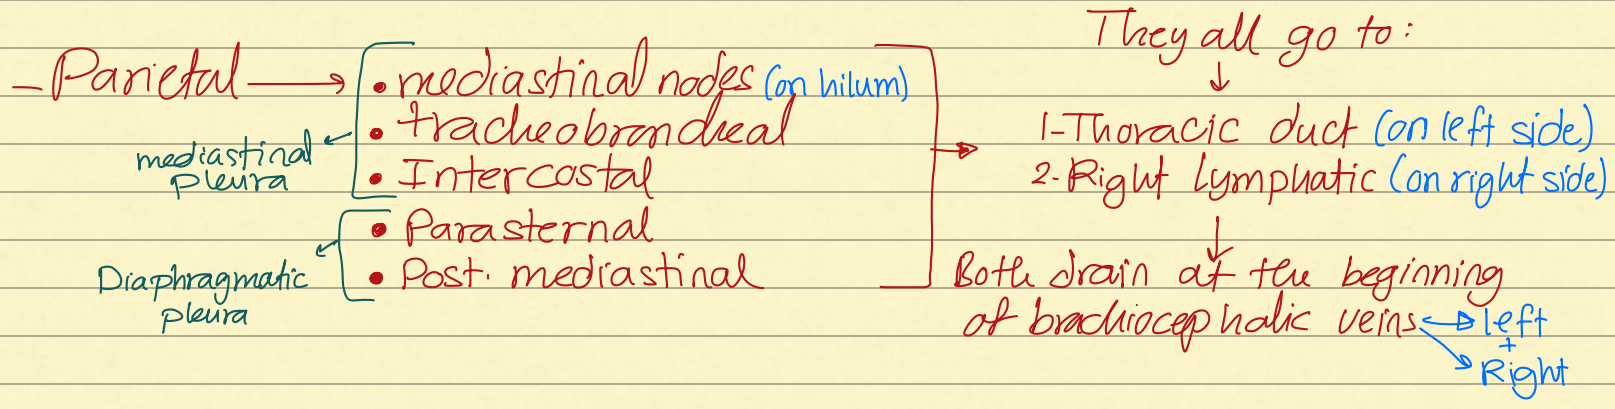 They all go to:
↓
– Parietal →
• mediastinal nodes (on hilum)
• tracheobroncheal
• Intercostal
mediastinal
pleura
• Parasternal
• Post. mediastinal
Diaphragmatic
pleura
1-Thoracic duct (on left side)
2-Right lymphatic (on right side)
↓
Both drain at the beginning
of brachiocephalic veins
left
+
Right